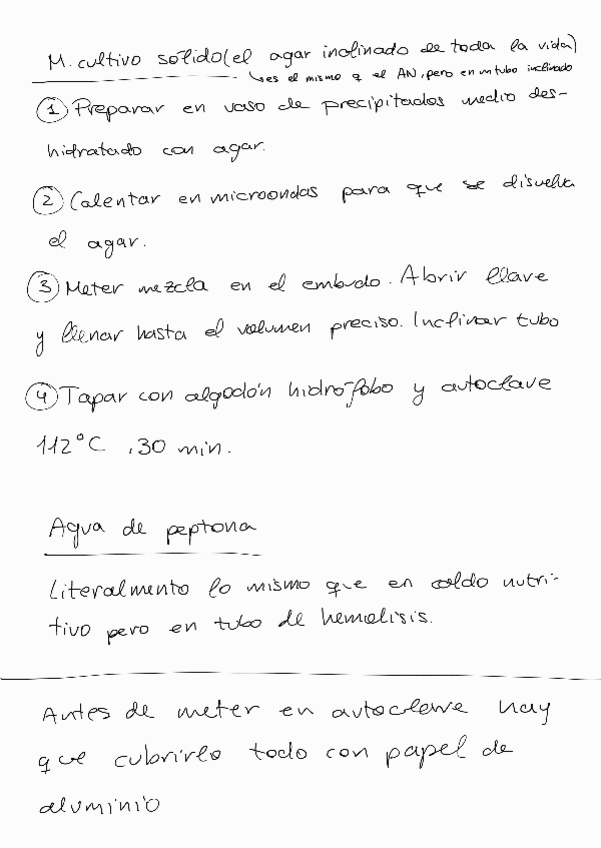 M. cultivo sólido (el agar inclinado de toda la vida)
↳ es el mismo q el AN, pero en un tubo inclinado
① Preparar en vaso de precipitados medio des-
hidratado con agar.
② Calentar en microondas para que se disuelva
el agar.
③ Meter mezcla en el embudo. Abrir llave
y llenar hasta el volumen preciso. Inclinar tubo
④ Tapar con algodón hidrófobo y autoclave
112°C, 30 min.
Agua de peptona
Literalmento lo mismo que en caldo nutri-
tivo pero en tubo de hemolisis.
Antes de meter en autoclave hay
que cubrirlo todo con papel de
aluminio